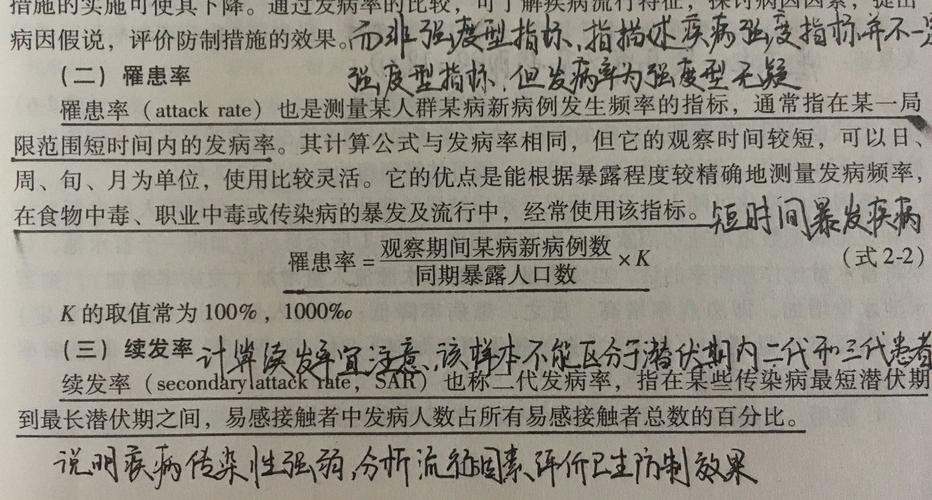 措施的实施可使其下降。通过发病率的比较，可了解疾病流行特征，探讨病因因素，提出
病因假说，评价防制措施的效果。而非强度型指标，指描述疾病强度指标并不一定
（二）罹患率 强度型指标，但发病率为强度型无疑
罹患率（attack rate）也是测量某人群某病新病例发生频率的指标，通常指在某一局
限范围短时间内的发病率。其计算公式与发病率相同，但它的观察时间较短，可以日、
周、旬、月为单位，使用比较灵活。它的优点是能根据暴露程度较精确地测量发病频率，
在食物中毒、职业中毒或传染病的暴发及流行中，经常使用该指标。短时间暴发疾病
罹患率 = 观察期间某病新病例数 / 同期暴露人口数 × K （式 2-2）
K 的取值常为 100%，1000‰
（三）续发率 计算续发率宜注意，该样本不能区分于潜伏期内二代和三代患者
续发率（secondary attack rate，SAR）也称二代发病率，指在某些传染病最短潜伏期
到最长潜伏期之间，易感接触者中发病人数占所有易感接触者总数的百分比。
说明疾病传染性强弱，分析流行因素，评价卫生防制效果